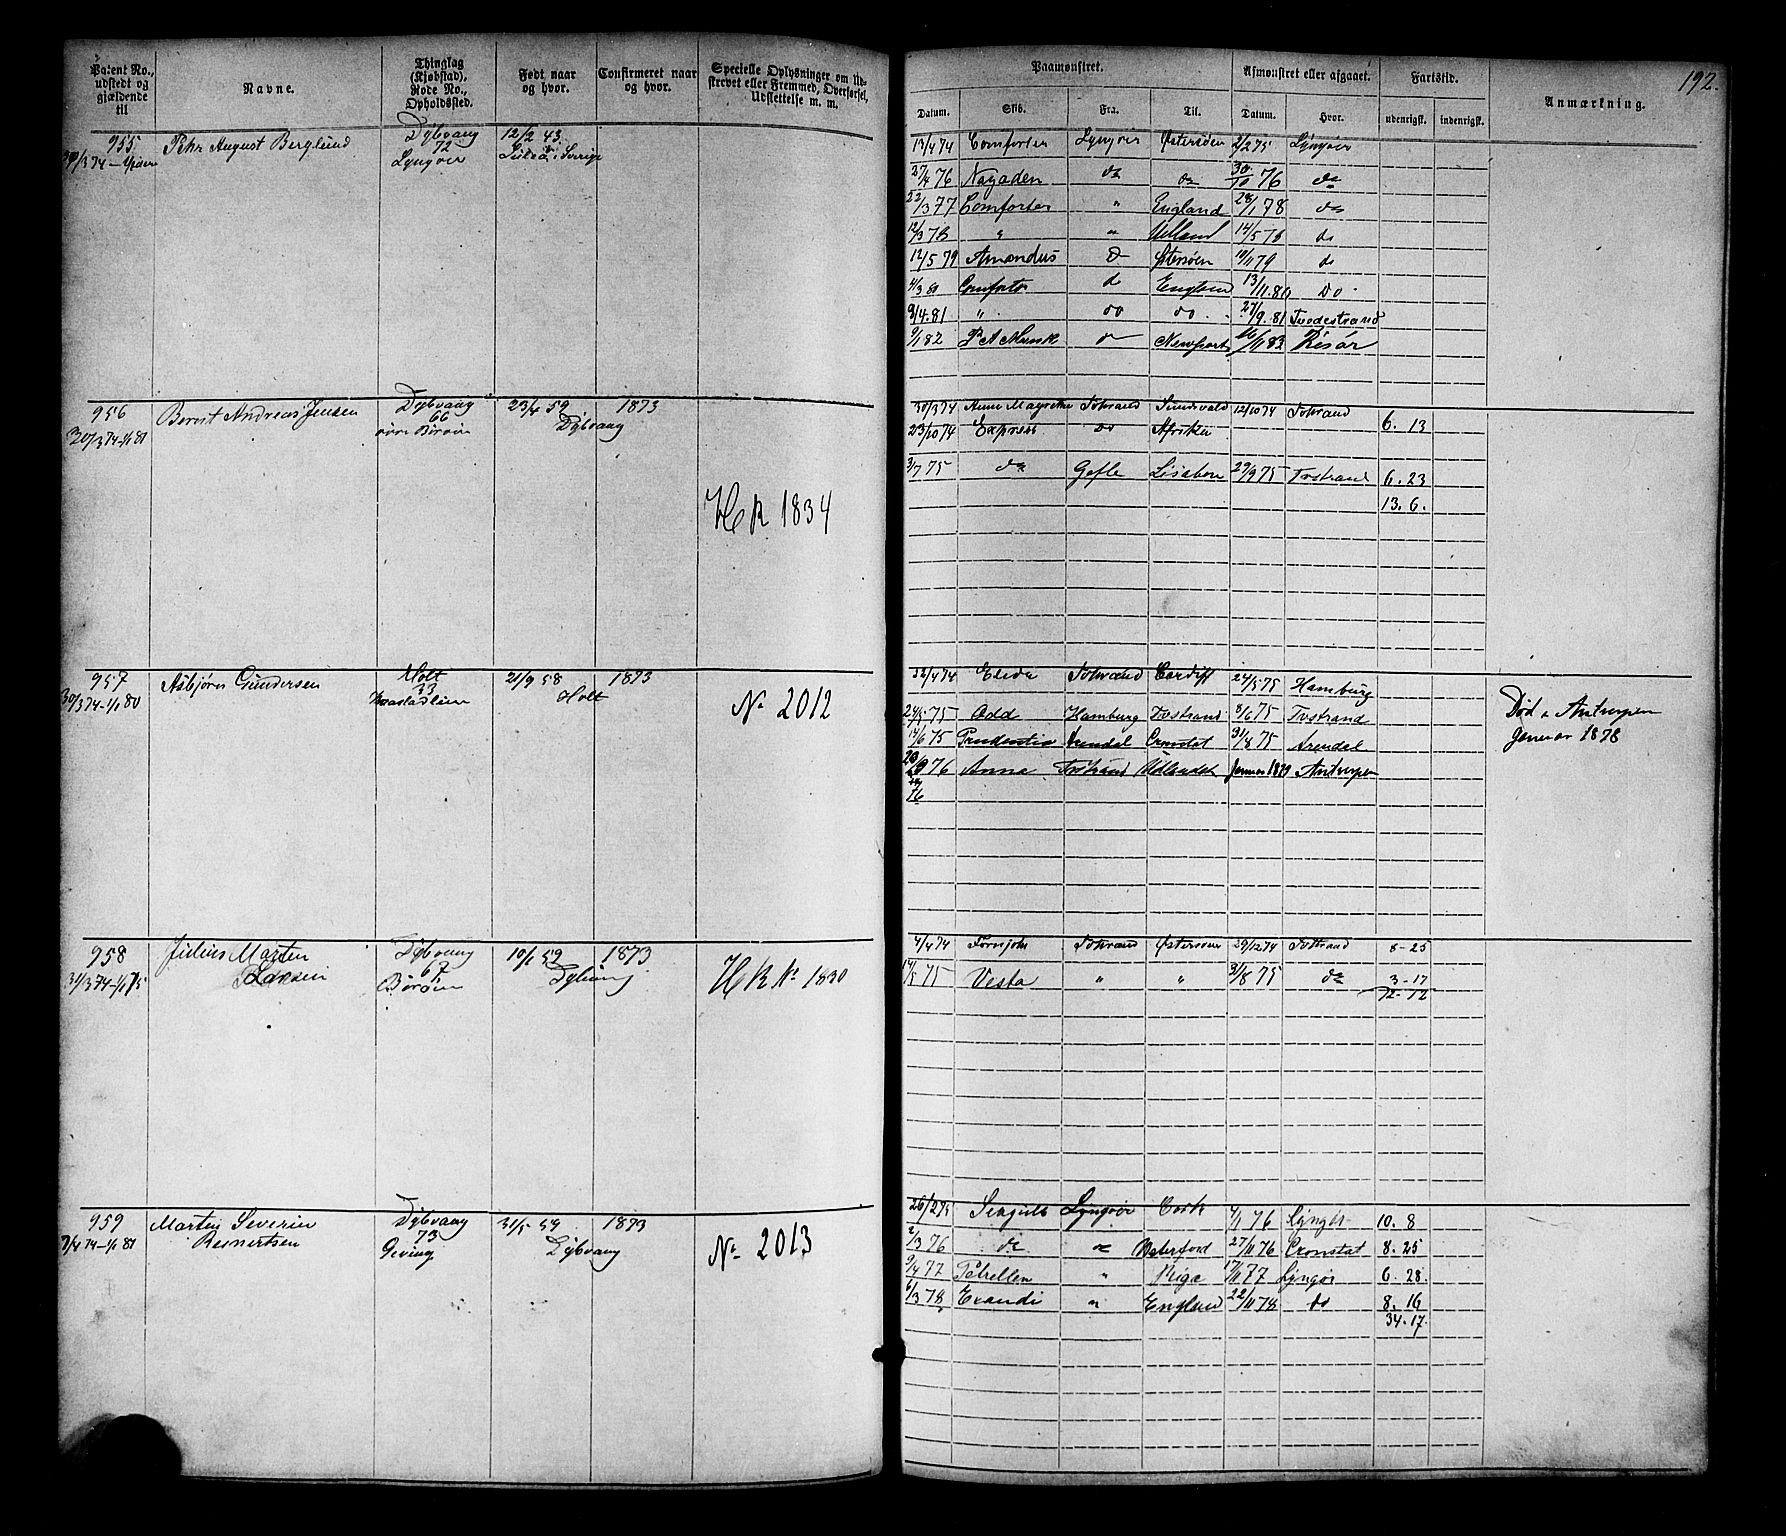 192.
Patent No., udstedt og gjældende til
Navne.
Thinglag (Kjøbstad), Rode No., Opholdssted.
Født naar og hvor.
Confirmeret naar og hvor.
Specielle Oplysninger om Udskrevet eller Fremmed, Overførsel, Udslettelse m. m.
Paamønstret.
Afmønstret eller afgaaet.
Fartstid.
Anmærkning.
Datum. Skib. Fra. Til. Datum. Hvor. udenrigsk. indenrigsk.
955 Pehr August Berglund Dybvaag 12/2 43.
72
Lyngøer i Sverige
13/4 74 Comforter Lyngøer Østersøen 2/2 75 Lyngøer
27/4 76 Nayaden do do 30/10 76 do
22/3 77 Comforter " England 28/1 78 do
12/3 78 " " Udland 14/5 78 do
12/5 79 Amandus do Østersøen 10/11 79 do
4/3 80 Comforter do England 13/11.80 Do
9/4.81 " do do. 27/9.81 Tvedestrand
9/1 82 P A Munk do Newport 16/11 83 Risør
956 Bernt Andreas Jensen Dybvaag 23/4 59 1873
66 Dybvaag
30/3 74-1/1 81 Børøen
HR 1834
30/3 74 Anne Magrethe Tvstrand Sundsvald 12/10 74 Tvstrand
23/10 74 Express do Afrika 6. 13
3/7 75 do Gefle Lisabon 29/9 75 Tvstrand 6. 23
13. 6.
957 Asbjørn Gundersen Holt 21/9 58 1873
33 Holt
30/3 74-1/1 80
No 2012
22/4 74 Elida Tvstrand Cardiff 24/5 75 Hamburg
24/5 75 Odd Hamburg Tvstrand 8/6 75 Tvstrand
14/6 75 Prudentia Arendal Cronstat 31/8 75 Arendal
76 Anna Tvstrand Udlandet Januar 1879 Antverpen
Død i Antverpen
Januar 1878
958 Julius Marten Dybvaag 10/1 59 1873
67 Dybvaag
31/3 74-1/1 75 Larsen Børøen
HR No 1830
4/4 74 Fornjoht Tvstrand Østersøen 29/12 74 Tvstrand 8-25
14/5 75 Vesta " " 31/8 75 do 3-17
12-12
959 Marten Severin Dybvaag 31/5 59 1873
73
7/4 74-1/1 81 Reinertsen Geving Dybvaag
No 2013
26/2 75 Seagull Lyngøer Cork 4/1 76 Lyngør 10. 8
2/3 76 do do Waterford 27/11 76 Cronstat 8. 25
9/4 77 Petrellen " Riga 17/11 77 Lyngør 6. 28.
6/3 78 Exandi " England 22/11 78 do 8. 16
34.17.